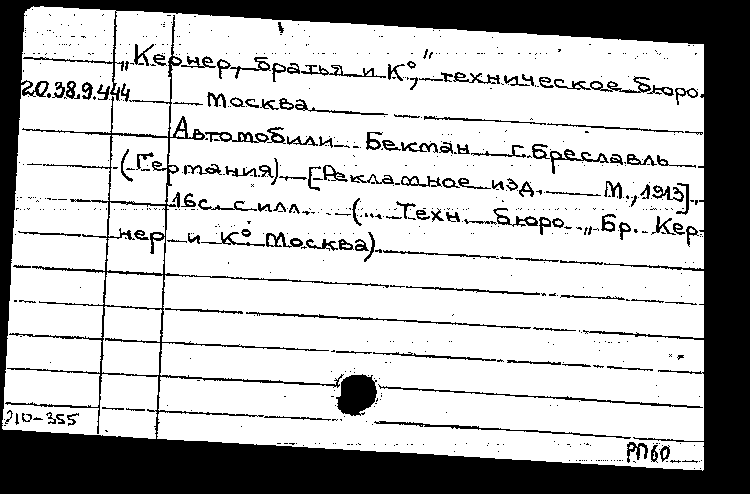 „Кернер, братья и К°”, техническое бюро.
20.38.9.444 Москва.
Автомобили Бекман. г.Бреславль
(Германия). [Рекламное изд. М., 1913].
16с. с илл. (... Техн. бюро „Бр. Кер-
нер и К° Москва).
210-355
РП60